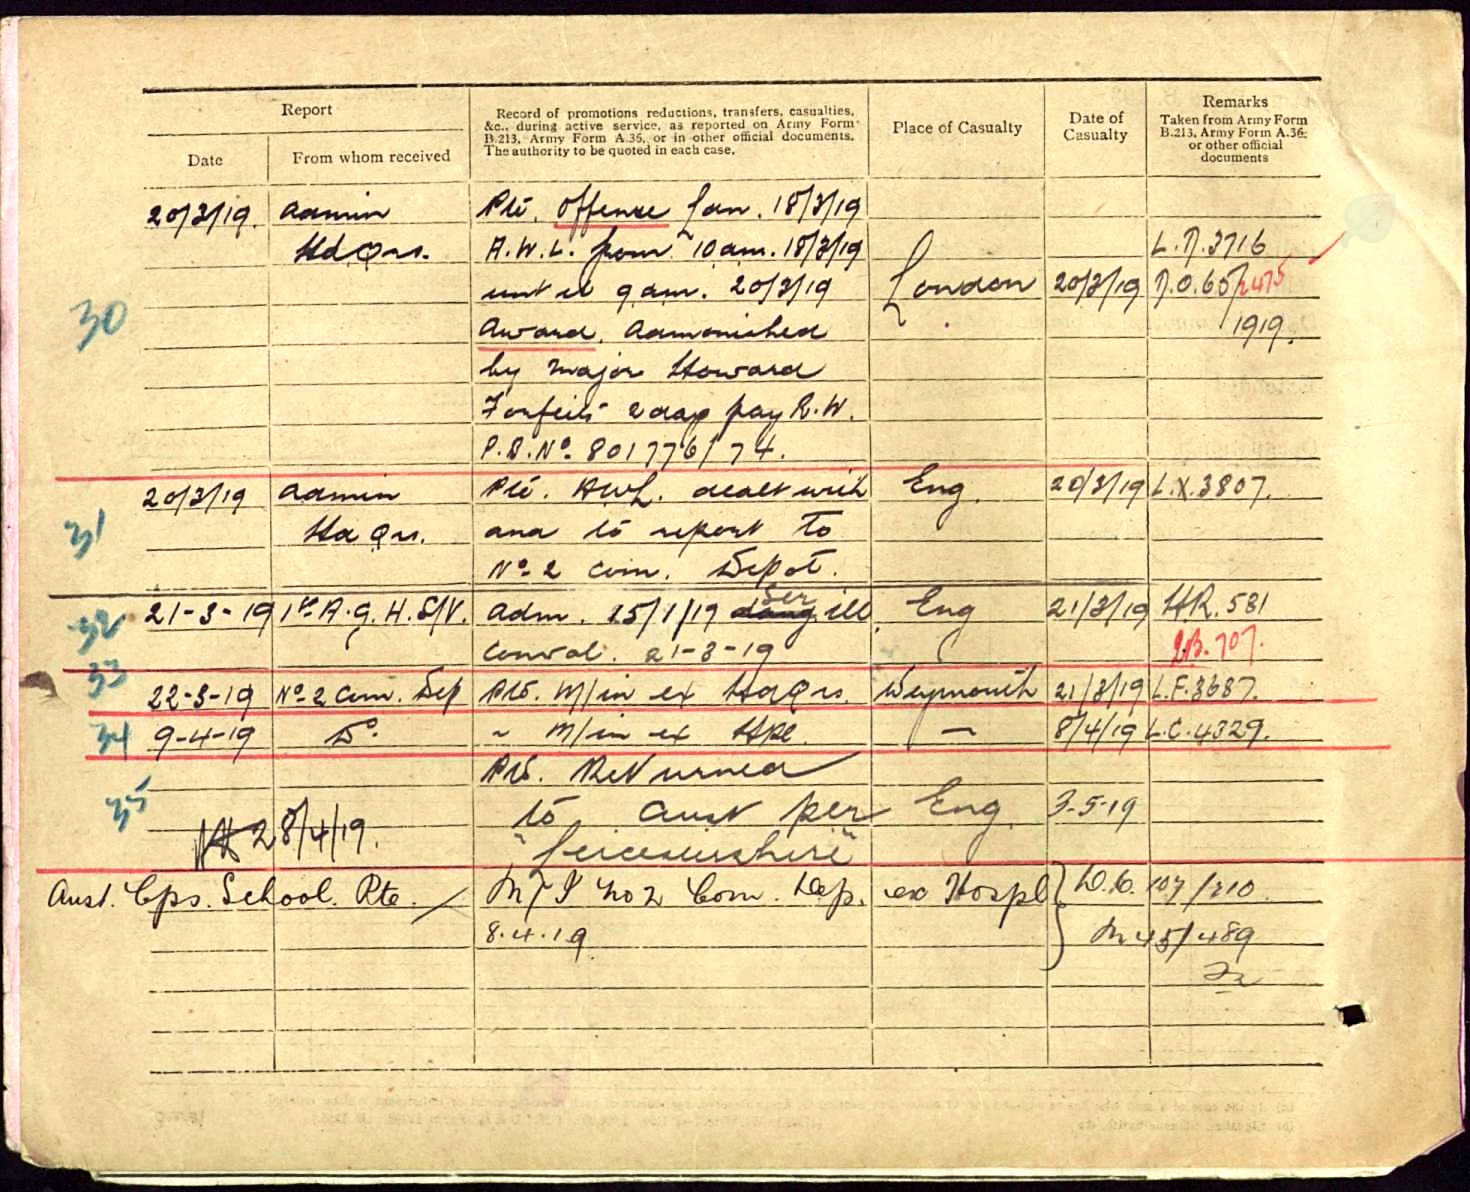 Report
Record of promotions reductions, transfers, casualties,
&c., during active service, as reported on Army Form
B.213, Army Form A.36, or in other official documents.
The authority to be quoted in each case.
Place of Casualty
Date of
Casualty
Remarks
Taken from Army Form
B.213, Army Form A.36,
or other official
documents
Date
From whom received
30
20/3/19. Admin Pte. Offense Lon. 18/3/19
Hd Qrs. A.W.L. from 10 am. 18/3/19 L.N.3716
until 9 am. 20/3/19 London 20/3/19 D.O.65/2475
Award. Admonished 1919.
by Major Howard
Forfeits 2 days pay R.W.
P.D.No. 801776/74.
31
20/3/19 Admin Pte. AWL. dealt with Eng. 20/3/19 L.X.3807.
Hd Qrs. and to report to
No. 2 Com. Depot.
32
21-3-19 1st A.G.H. S/V. Adm. 15/1/19 dang Ser ill Eng 21/3/19 HR. 581
Conval. 21-3-19 707.
33
22-3-19 No. 2 Com. Dep Pte. M/in ex Hd Qrs. Weymouth 21/3/19 L.F.3687.
34
9-4-19 Do. " M/in ex Hpl. — 8/4/19 L.C.4329.
35
Pte. Returned
28/4/19. to Aust per Eng. 3-5-19
"Leicestershire"
Aust. Cps. School. Rte. / M/I No 2 Com. Dep. ex Hospl D.C. 107/210
8.4.19 M 45/489